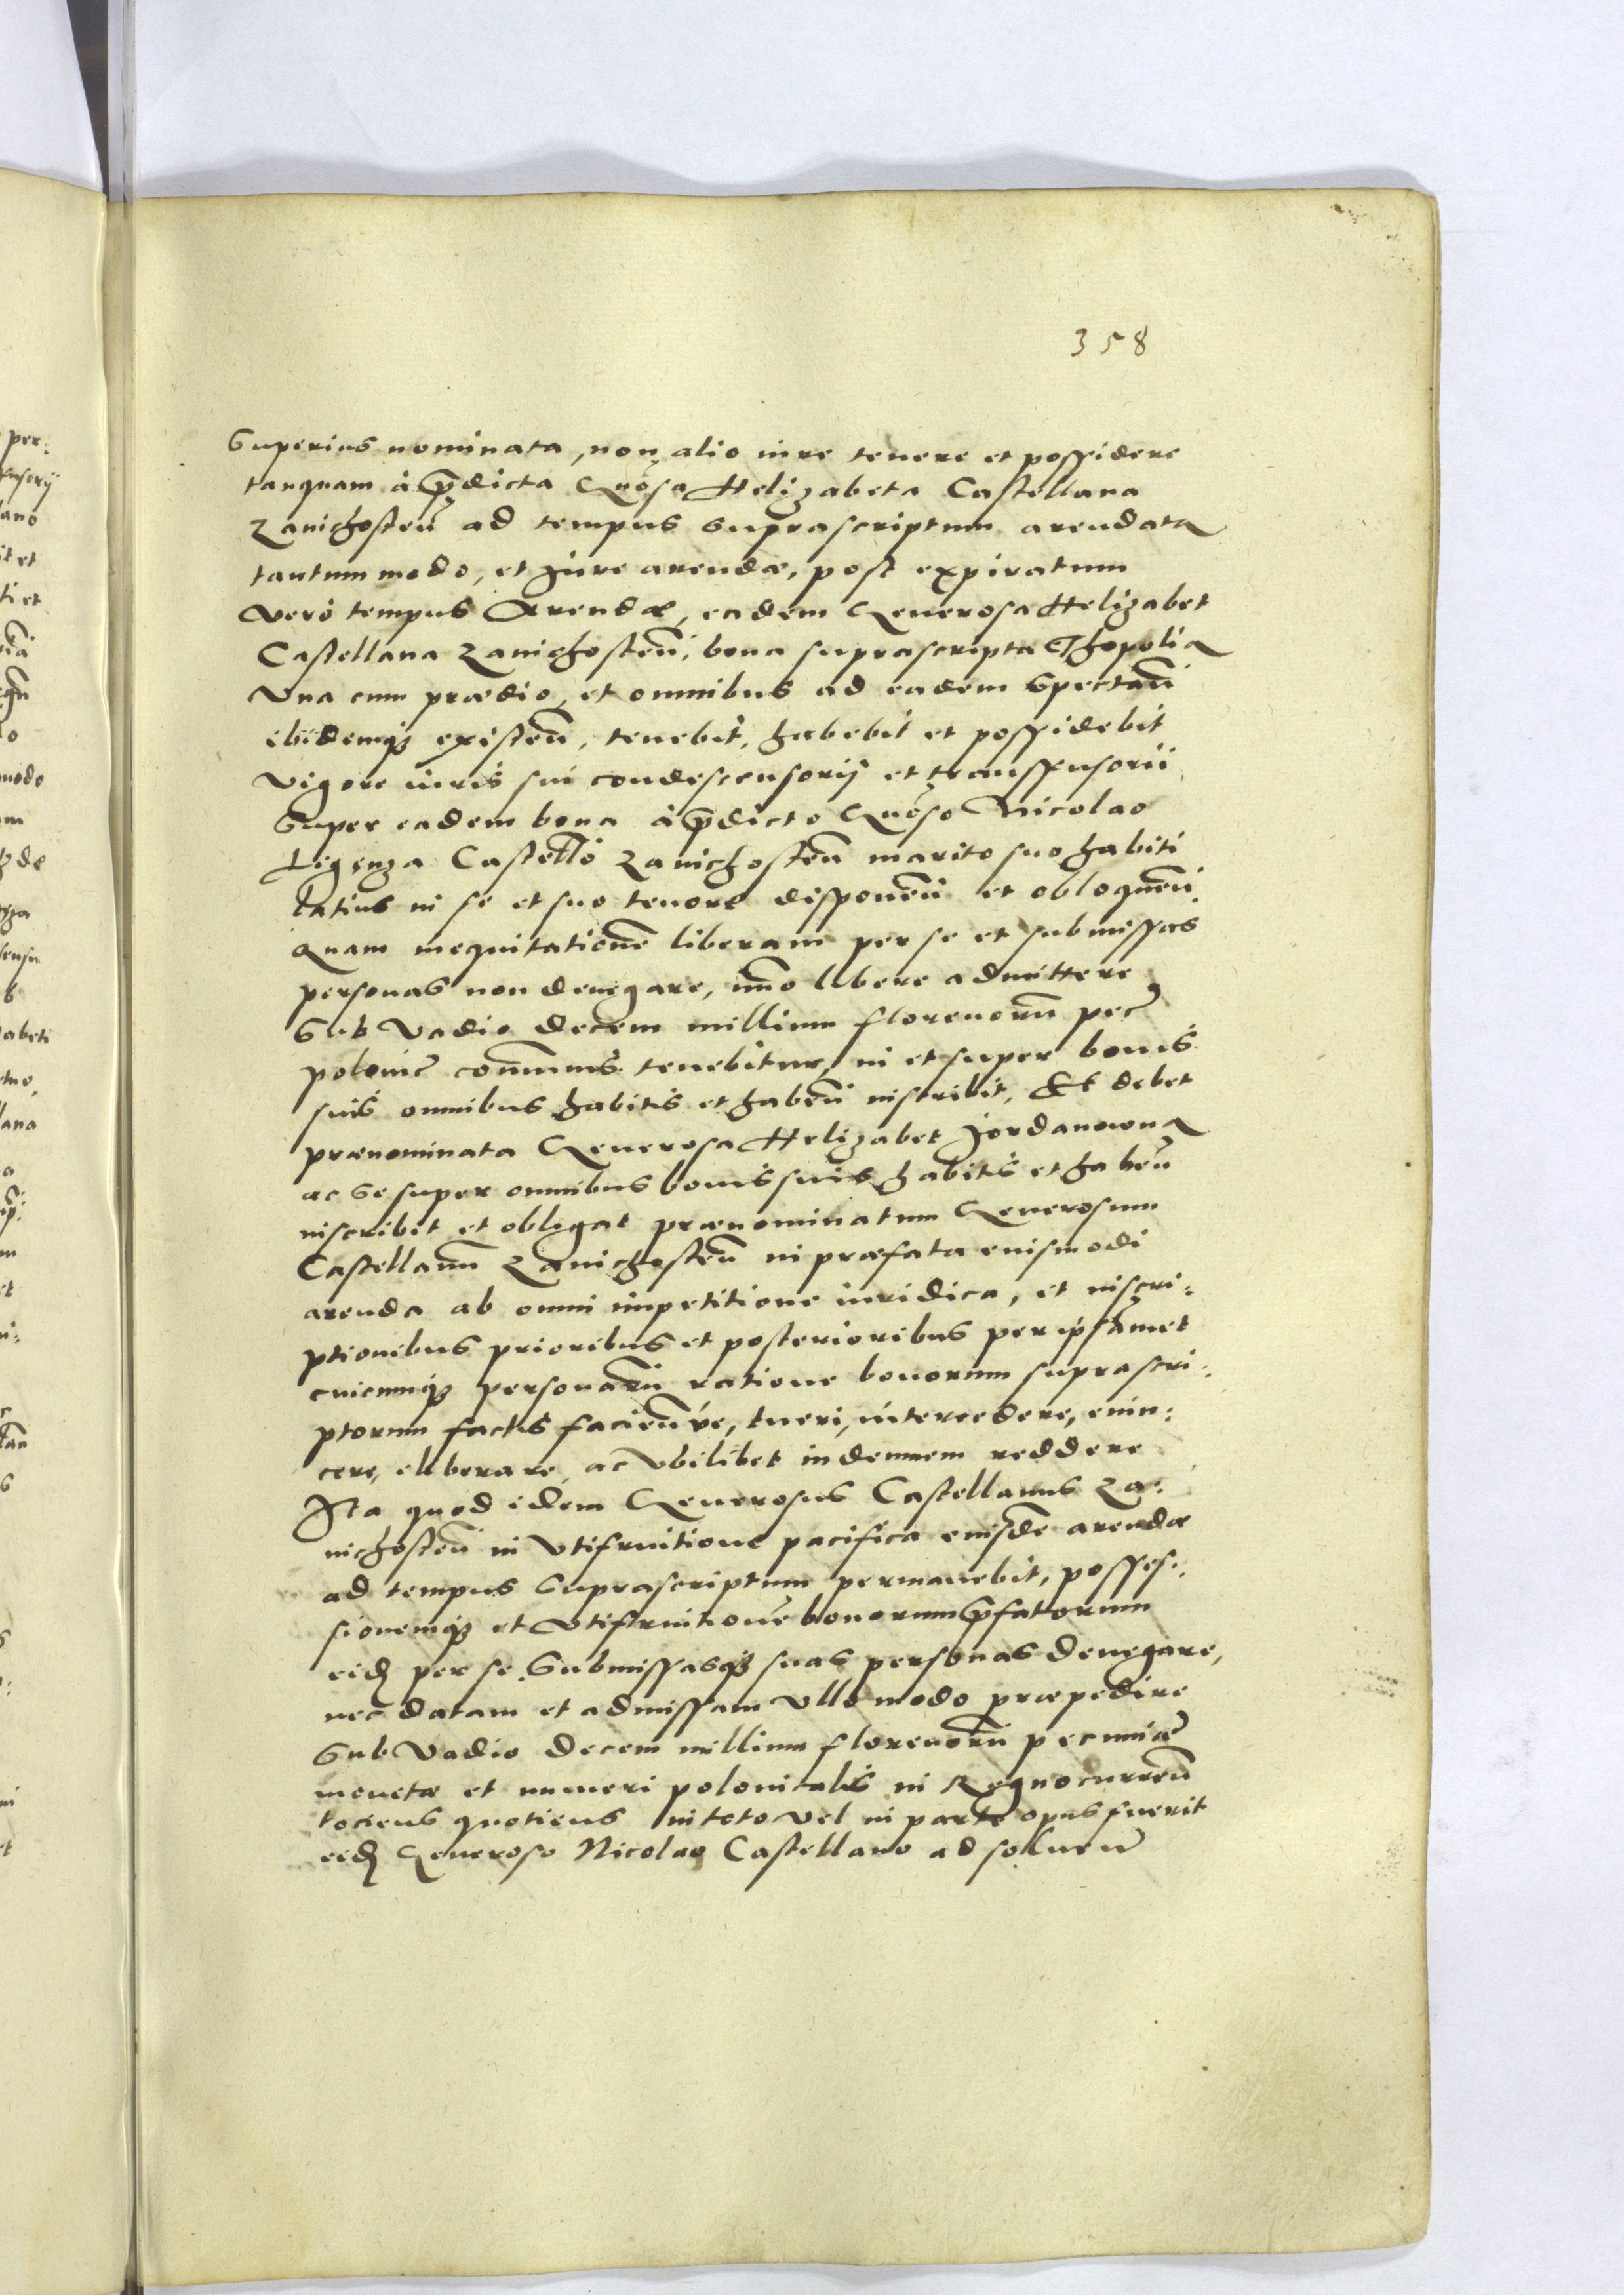 358
Superius nominata, non alio iure tenere et possidere
tanquam à p̃dicta Gñosa Helizabeta Castellana
Zawichosteñ ad tempus suprascriptum arendata
tantummodo, et Jure arendæ, post expiratum
vero tempus Arendæ, eadem Generosa Helizabet
Castellana Zawichosteñ, bona suprascripta Thopolia
Vna cum prædio, et omnibus ad eadem spectañ
ibidemq₃ existeñ, tenebit, habebit et possidebit
vigore iuris sui condescensorij et transsensorii
Super eadem bona à p̃dicto Gñoso Nicolao
Ligenza Castellõ Zawichosteñ marito suo habiti
latius in se et suo tenore disponeñ et obloqueñ.
Quam inequitationẽ liberam per se et submissas
personas non denegare, im̃o libere admittere
Sub Vadio decem millium florenorũ pec̃
polonic̃ com̃unis tenebitur, in et super bonis
suis omnibus habitis et habeñ inscribit, Et debet
prænominata Generosa Helizabet Jordanowna
ac se super omnibus bonis suis habitis et habeñ
inscribit et obligat prænominatum Generosum
Castellanũ Zawichosteñ in præfata euismodi
arenda ab omni impetitione iuridica, et inscri:
ptionibus prioribus et posterioribus per ipsamet
cuiusmq₃ personarũ ratione bonorum suprascri:
ptorum factis facieñve, tueri, intercedere, euin:
cere, eliberare, ac vbilibet indemnem reddere
Ita quod idem Generosus Castellanus Za:
wichosteñ in vtifruitione pacifica eiusdẽ arendæ
ad tempus suprascriptum permanebit, posses:
sionemq₃ et vtifruitionẽ bonorum p̃fatorum
eidẽ per se Submissasq₃ suas personas denegare,
nec datam et admissam vllo modo præpedire
Sub Vadio decem millium florenorũ pecuniæ
monetæ et numeri polonicalis in Regno curreñ
tociens quotiens in toto vel in parte opus fuerit
eidẽ Generoso Nicolao Castellano ad solueñ